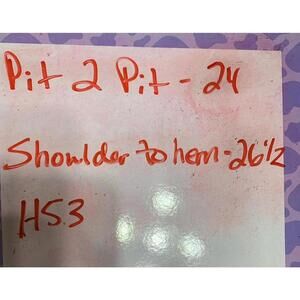 Pit 2 Pit - 24
Shoulder to hem - 26 1/2
H53